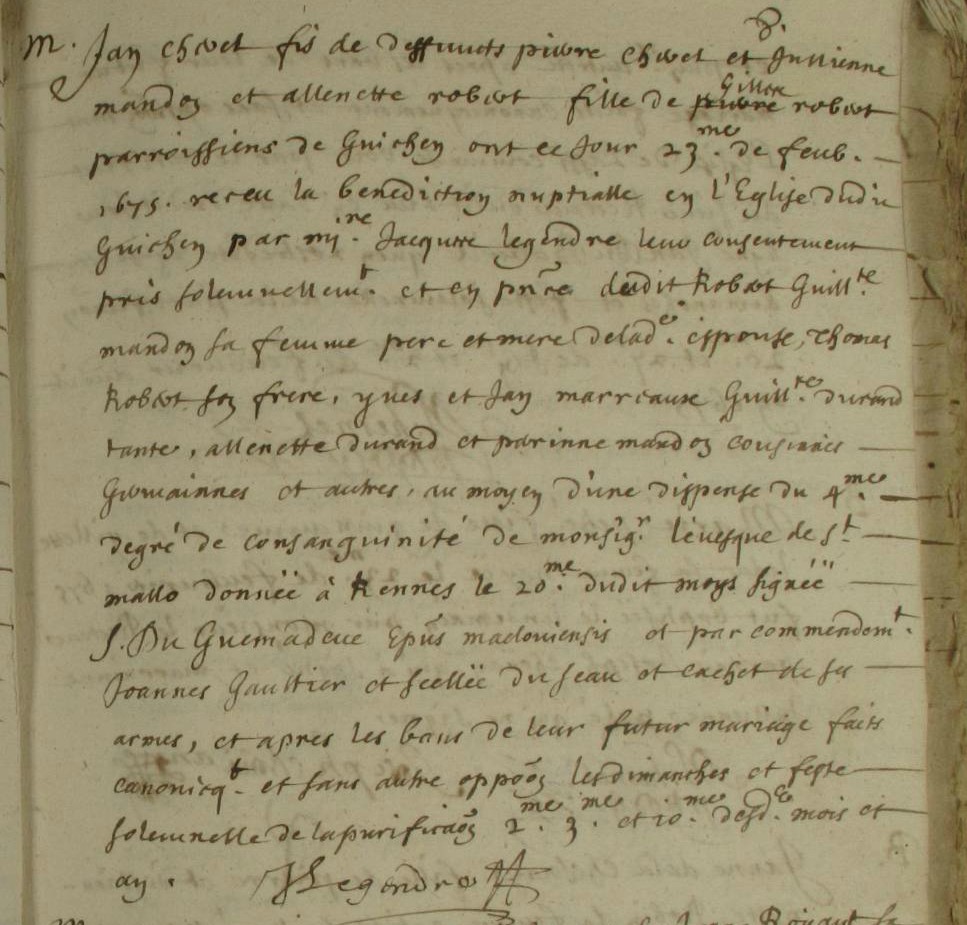 M. Jan chevet fis de deffuncts pierre chevet et Jullienne
mandon et allenette robert fille de pierre Gilles robert
parroissiens de Guichen ont ce Jour 23.me de feub.
1675. receu la benediction nuptialle en l'Eglise dudit
Guichen par mi.re Jacques legendre leur consentement
pris solemnellemt. et en pnce dudit Robert Guill.te
mandon sa femme pere et mere delade. espouse, Thomas
Robert son frere, yves et Jan marreaux Guill.te durand
tante, allenette durand et perinne mandon cousinnes
Germainnes et autres, au moyen d'une dispense du 4.me
degré de consanguinité de monsig.r l'evesque de St
mallo donnëë à Rennes le 20.me dudit moys signëë
S. Du Guemadeuc Epūs macloviensis et par commendemt.
Joannes Gaultier et scellëë du seau et cachet de ses
armes, et apres les bans de leur futur mariage faits
canonicqt. et sans autre oppōōn les dimanches et feste
solemnelle de la purificaōn 2.me 3.me et 10.me desd. mois et
an. JLegendre
Jan